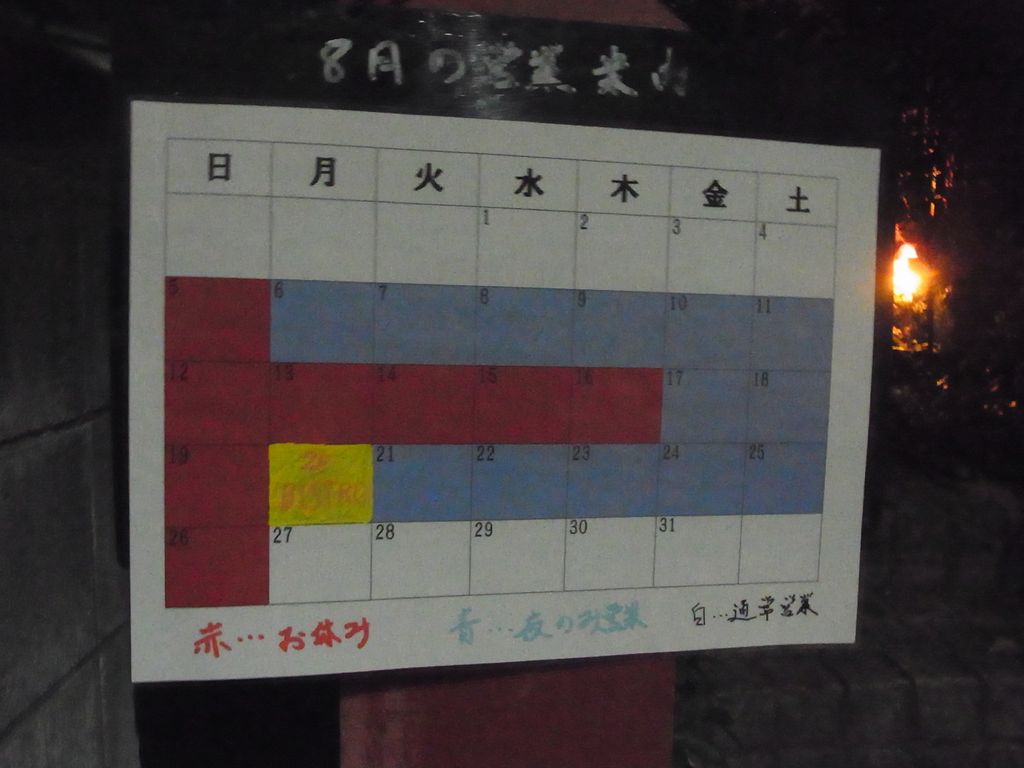 8月の営業案内
日 月 火 水 木 金 土
1 2 3 4
5 6 7 8 9 10 11
12 13 14 15 16 17 18
19 21 22 23 24 25
26 27 28 29 30 31
赤…お休み 青…夜のみ営業 白…通常営業